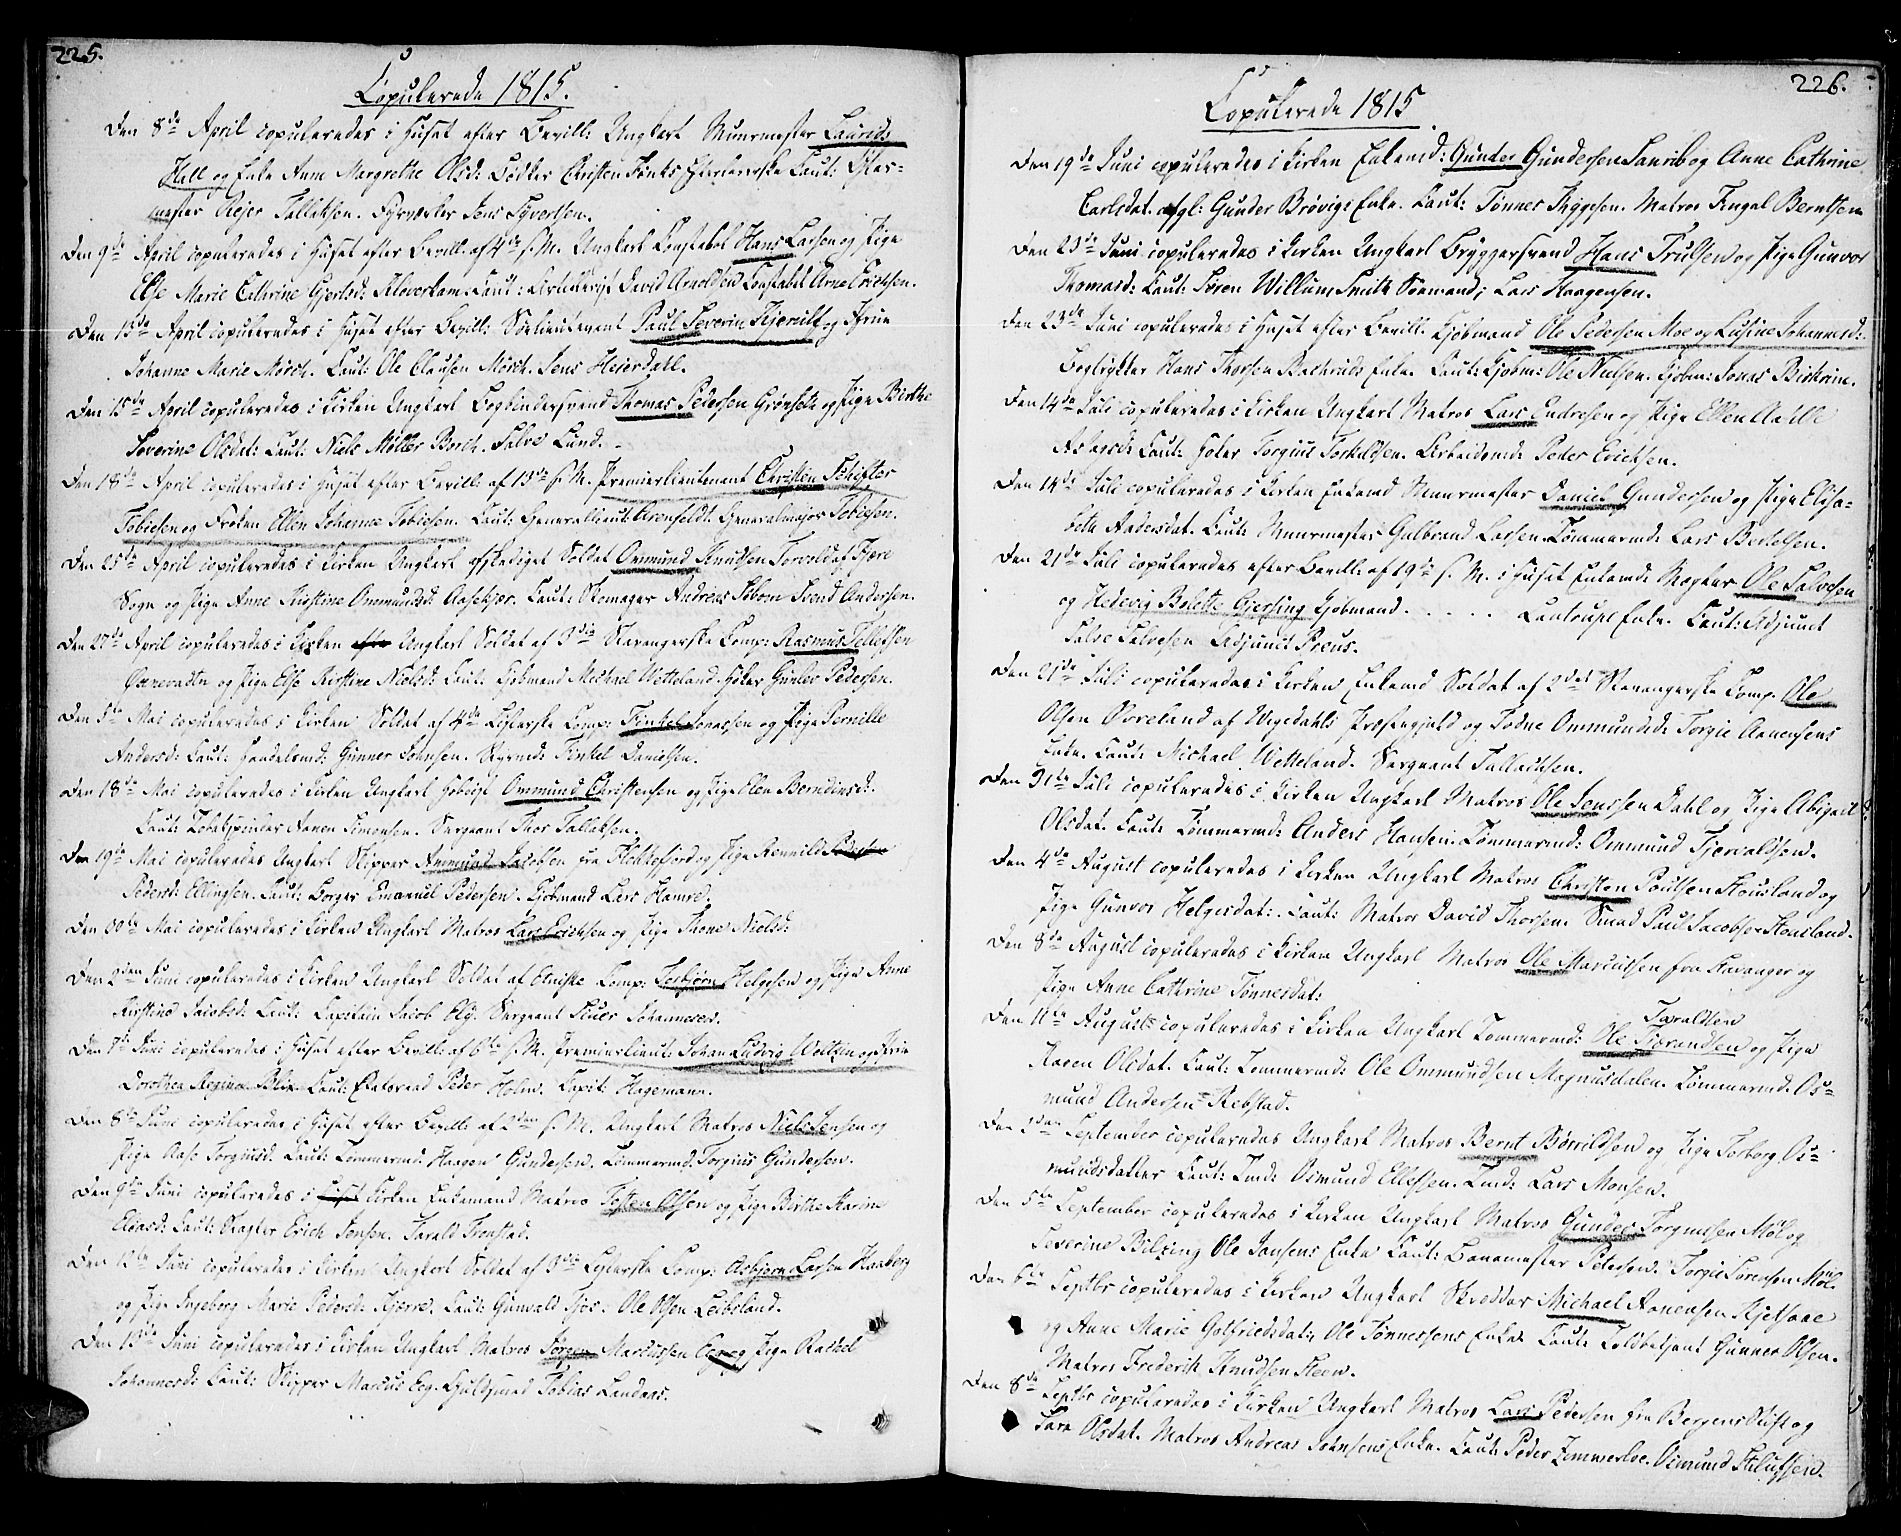 225.
Copulerede 1815.
Den 8de April copuleredes i Huset efter Bevill: Ungkarl Muurmester Laurids
Hall og Enke Anne Margrethe Olsd: Bødker Christen Fønks Efterleverske Caut:
mester Rejer Tallaksen. Fyrværker Jens Syvertsen.
Den 9de April copuleredes i Huset efter Bevill. af 4de s. M. Ungkarl Constabel Hans Larsen og Pige
Else Marie Cathrine Gjertsd: Kloverkam. Caut: David Arnoldsen Constabel Arne Erichsen.
Den 15de April copuleredes i Huset efter Bevill: Søelieutenant Paul Severin Kjerulf og Frue
Johanne Marie Mørch. Caut: Ole Clausen Mørch. Jens Heierdahl.
Den 15de April copuleredes i Kirken Ungkarl Bogbindersvend Thomas Pedersen Grønsett og Pige Birthe
Severine Olsdat: Caut: Niels Møller Borch. Salve Lund.
Den 18de April copuleredes i Huset efter Bevill: af 15de s. M. Premierlieutenant Christen Schifter
Tobiesen og Frøken Ellen Johanne Tobiesen. Caut: Generallieut: Arenfeldt. Generalmajor Tobiesen.
Den 25de April copuleredes i Kirken Ungkarl afskediget Soldat Ommund Knudsen Torvold af Fjære
Sogn og Pige Anne Kirstine Ommundsd: Aasekjær. Caut: Skomager Andreas Svend Andersen.
Den 27de April copuleredes i Kirken efter Ungkarl Soldat af 3die Stavangerske Comp: Rasmus Tollefsen
og Pige Else Kirstine Nielsd: Caut: Kjøbmand Michael Wetteland. Høker Gunler Pedersen.
Den 5te Mai copuleredes i Kirken Soldat af 4de Listerske Comp: Tinkel Jonassen og Pige Pernille
Andersd: Caut: Handelsmd: Gunner Johnsen. Styrmd: Tinkel Danielsen.
Den 18de Mai copuleredes i Kirken Ungkarl Ommund Christensen og Pige Elen Berndinesd:
Caut: Tobakspinder Aanen Simonsen. Sergeant Thor Tallaksen.
Den 19de Mai copuleredes Ungkarl Skipper Anmund Jacobsen fra Flekkefjord og Pige Rennild Peders
Pedersd: Ellingsen. Caut: Borger Emanuel Pedersen. Kjøbmand Lars Hamre.
Den 30te Mai copuleredes i Kirken Ungkarl Matros Lars Erichsen og Pige Thone Nielsd:
Den 2den Juni copuleredes i Kirken Ungkarl Soldat af Comp: Torbjørn Helgesen og Pige Anne
Kirstine Jacobsd: Caut: Capitain Jacob Sergeant Johannesen.
Den 7de Juni copuleredes i Huset efter Bevill: af 6te s. M. Premierlieut: Johan Ludvig Woltzin og Frue
Dorothea Regina Blix Caut: Etatsraad Peder Holm. Capit: Hagemann.
Den 8de Juni copuleredes i Huset efter Bevill: af 2den s. M. Ungkarl Matros Niels Jensen og
Pige Aase Torgiusd. Caut: Tømmermd: Haagen Gundersen. Tømmermd. Torgius Gundersen.
Den 9de Juni copuleredes i Huset Kirken Enkemand Matros Tosten Olsen og Pige Birthe Karine
Eliasd: Caut: Slagter Erich Jensen. Tarald Tronstad.
Den 12te Juni copuleredes i Kirken Ungkarl Soldat af 3die Listerske Comp: Asbjørn Larsen Haaberg
og Pige Ingeborg Marie Pedersd: Kjerre. Caut: Gunvald Ole Olsen Leibeland.
Den 13de Juni copuleredes i Kirken Ungkarl Matros Jørgen Marcussen Eeg og Pige Rachel
Johannesd: Caut: Skipper Marcus Eeg. Guldsmed Tobias Landaas.
226.
Copulerede 1815
Den 19de Juni copuleredes i Kirken Enkemd: Gunder Gundersen Sanrib og Anne Cathrine
Carlsdat. afgl: Gunder Brøvigs Enke. Caut: Tønnes Thygesen. Matros Tingal Berntsen
Den 23de Juni copuleredes i Kirken Ungkarl Bryggersvend Hans Trulsen og Pige Gunvor
Thomasd: Caut: Søren Willum Smith Sømand; Lars Haagensen.
Den 23de Juni copuleredes i Huset efter Bevill. Kjøbmand Ole Pedersen Moe og Lusine Johannesd:
Bogtrykker Hans Thorsen Bachruds Enke. Caut: Kjøbm: Ole Nielsen. Kjøbm: Jonas Birkrim.
Den 14de Juli copuleredes i Kirken Ungkarl Matros Lars Endresen og Pige Ellen
Aslagsd: Caut: Høker Torgius Torkildsen. Arbeidsmd: Peder Erichsen.
Den 14de Juli copuleredes i Kirken Enkemd Muurmester Daniel Gundersen og Pige Elisa-
beth Andersdat. Caut: Muurmester Gulbrand Larsen. Tømmermd: Lars Bertelsen.
Den 21de Juli copuleredes efter Bevill: af 19de s. M. i Huset Enkemd: Mægler Ole Salvesen
og Hedevig Bolette Gjersing Kjøbmand . . . . . Lantrups Enke. Caut: Adjunct
Salve Salvesen Adjunct Preus.
Den 21de Juli copuleredes i Kirken Enkemd Soldat af 2det Stavangerske Comp. Ole
Olsen Voreland af Wegedahls Præstegjæld og Todne Ommundsd: Torgie Aanensens
Enke. Caut: Michael Wetteland. Sergeant Tallacksen.
Den 31te Juli copuleredes i Kirken Ungkarl Matros Ole Jenssen Dahl og Pige Abigail
Olsdat. Caut: Tømmermd: Anders Hansen. Tømmermd: Ommund Tjerealdsen.
Den 4de August copuleredes i Kirken Ungkarl Matros Christen Poulsen Housland og
Pige Gunvor Helgesdat: Caut: Matros David Thorsen. Smed Paul Jacobsen Housland.
Den 8de August copuleredes i Kirken Ungkarl Matros Ole Marcussen fra Stavanger og
Pige Anne Cathrine Tønnesdat:
Taraldsen
Den 11te August copuleredes i Kirken Ungkarl Tømmermd: Ole Tjerandsen og Pige
Karen Olsdat. Caut: Tømmermd: Ole Ommundsen Magnusdalen. Tømmermd. Os-
mund Andersen Rebstad.
Den 2den September copuleredes Ungkarl Matros Bernt Børrildsen og Pige Torborg Os-
mundsdatter Caut: Tmd: Osmund Ellefsen. Tmd: Lars Monsen.
Den 5te September copuleredes i Kirken Ungkarl Matros Gunder Torgiussen Møl og
Severine Bilzing Ole Jansens Enke Caut: Banemester Petersen. Torgie Sørensen Møl.
Den 6te Septbr copuleredes i Kirken Ungkarl Skrædder Michael Aanensen Kjetsaae
og Anne Marie Gotfriedsdat: Ole Tønnessens Enke Caut: Toldbetjent Gunner Olsen.
Matros Frederik Knudsen Steen.
Den 8de Septbr copuleredes i Kirken Ungkarl Matros Lars Pedersen fra Bergens Stift og
Sara Olsdat. Matros Andreas Johnsens Enke. Caut: Peder Zimmerloe. Osmund